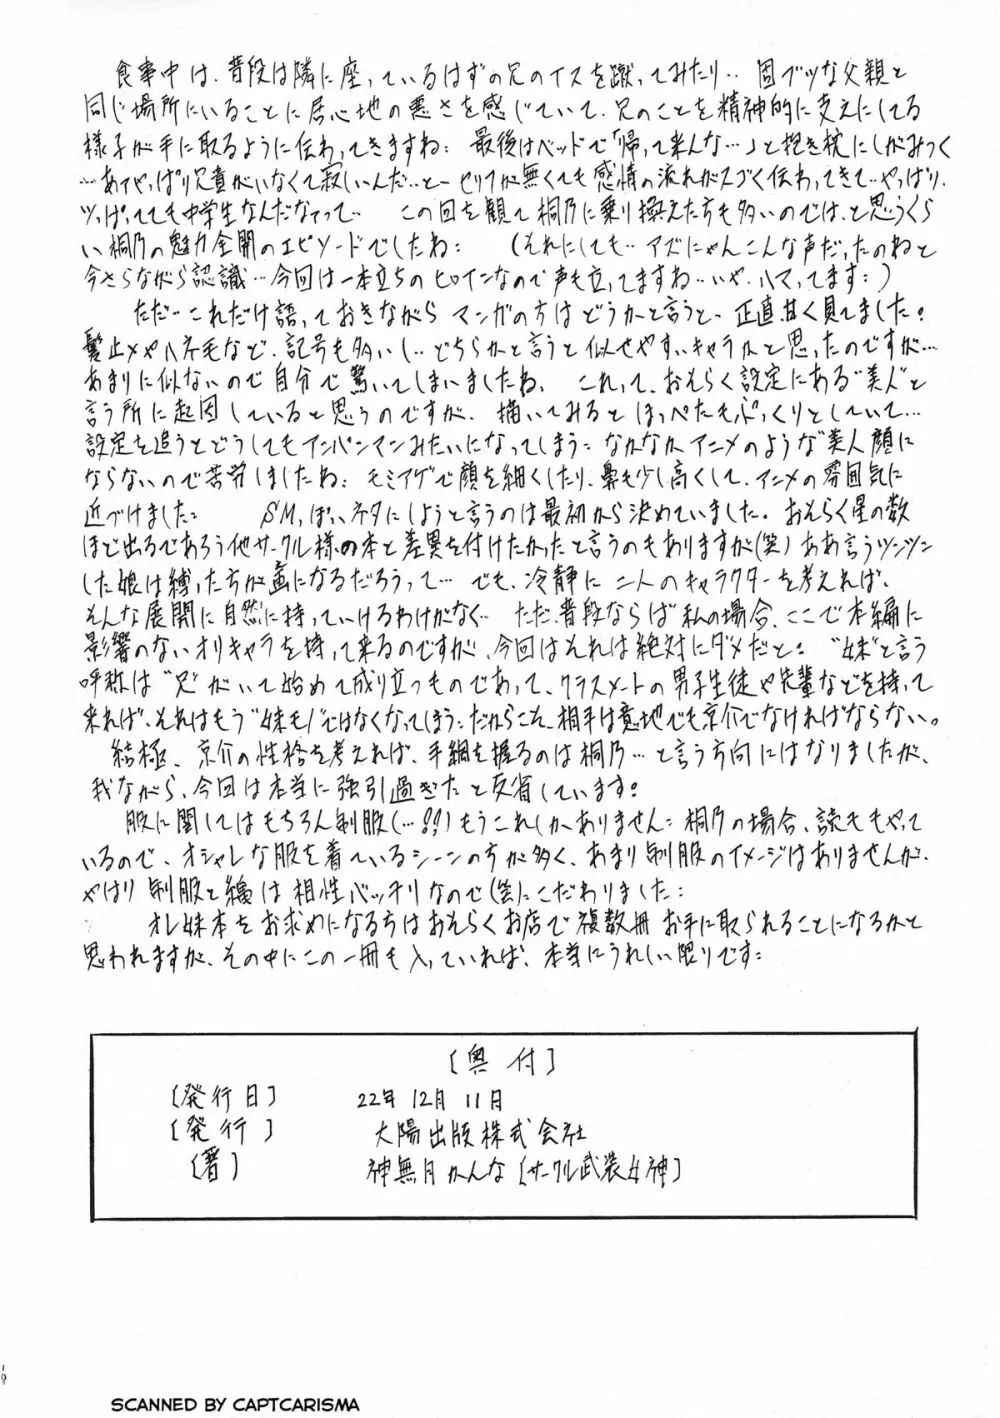 食事中は、普段は隣に座っているはずの兄のイスを蹴ってみたり‥固ブツな父親と
同じ場所にいることに居心地の悪さを感じていて、兄のことを精神的に支えにしてる
様子が手に取るように伝わってきますね: 最後はベッドで「帰って来んな…」と抱き枕にしがみつく
…あてやっぱり兄貴がいなくて寂しいんだ…とーセリフが無くても感情の流れがスゴく伝わってきて…やっぱり、
ツッぱってても中学生なんだなァって… この回を観て桐乃に乗り換えた方も多いのでは、と思うくら
い桐乃の魅力全開のエピソードでしたね: (それにしても…アズにゃんこんな声だったのねと
今さらながら認識…今回は一本立ちのヒロインなので声も立ってますね…いや、ハマってます:)
ただーこれだけ語っておきながらマンガの方はどうかと言うと、正直甘く見てました!
髪止メやハネ毛など、記号も多いし…どちらかと言うと似せやすいキャラかと思ったのですが…
あまりに似ないので自分で驚いてしまいましたね、 これって、おそらく設定にある"美人"と
言う所に起因していると思うのですが、描いてみるとほっぺたもぷっくりとしていて…
設定を追うとどうしてもアンパンマンみたいになってしまう: なかなかアニメのような"美人顔に
ならないので苦労しましたね: モミアゲで顔を細くしたり、鼻も少し高くして、アニメの雰囲気に
近づけました: SMっぽいネタにしようと言うのは最初から決めていました。おそらく星の数
ほど出るであろう他サークル様の本と差異を付けたかったと言うのもありますが(笑)ああ言うツンツン
した娘は縛った方が画になるだろうって… でも、冷静に二人のキャラクターを考えれば、
そんな展開に自然に持っていけるわけがなく… ただ、普段ならば私の場合、ここで本編に
影響のないオリキャラを持って来るのですが、今回はそれは絶対にダメだと: "妹"と言う
呼称は"兄"がいて始めて成り立つものであって、クラスメートの男子生徒や先輩などを持って
来れば、それはもう"妹モノ"ではなくなってしまう: だからこそ、相手は意地でも京介でなければならない。
結極、京介の性格を考えれば、手綱を握るのは桐乃…と言う方向にはなりましたが、
我ながら、今回は本当に強引過ぎたと反省しています:
服に関してはもちろん制服(…!!)もうこれしかありません: 桐乃の場合、読モもやって
いるので、オシャレな服を着ているシーンの方が多く、あまり制服のイメージはありませんが、
やはり制服と縄は相性バッチリなので(笑)こだわりました:
オレ妹本をお求めになる方はおそらくお店で複数冊お手に取られることになるかと
思われますが、その中にこの一冊も入っていれば、本当にうれしい限りです:
[奥付]
[発行日] 22年12月11日
[発行] 大陽出版株式会社
[著] 神無月かんな[サークル武装女神]
103
SCANNED BY CAPTCARISMA